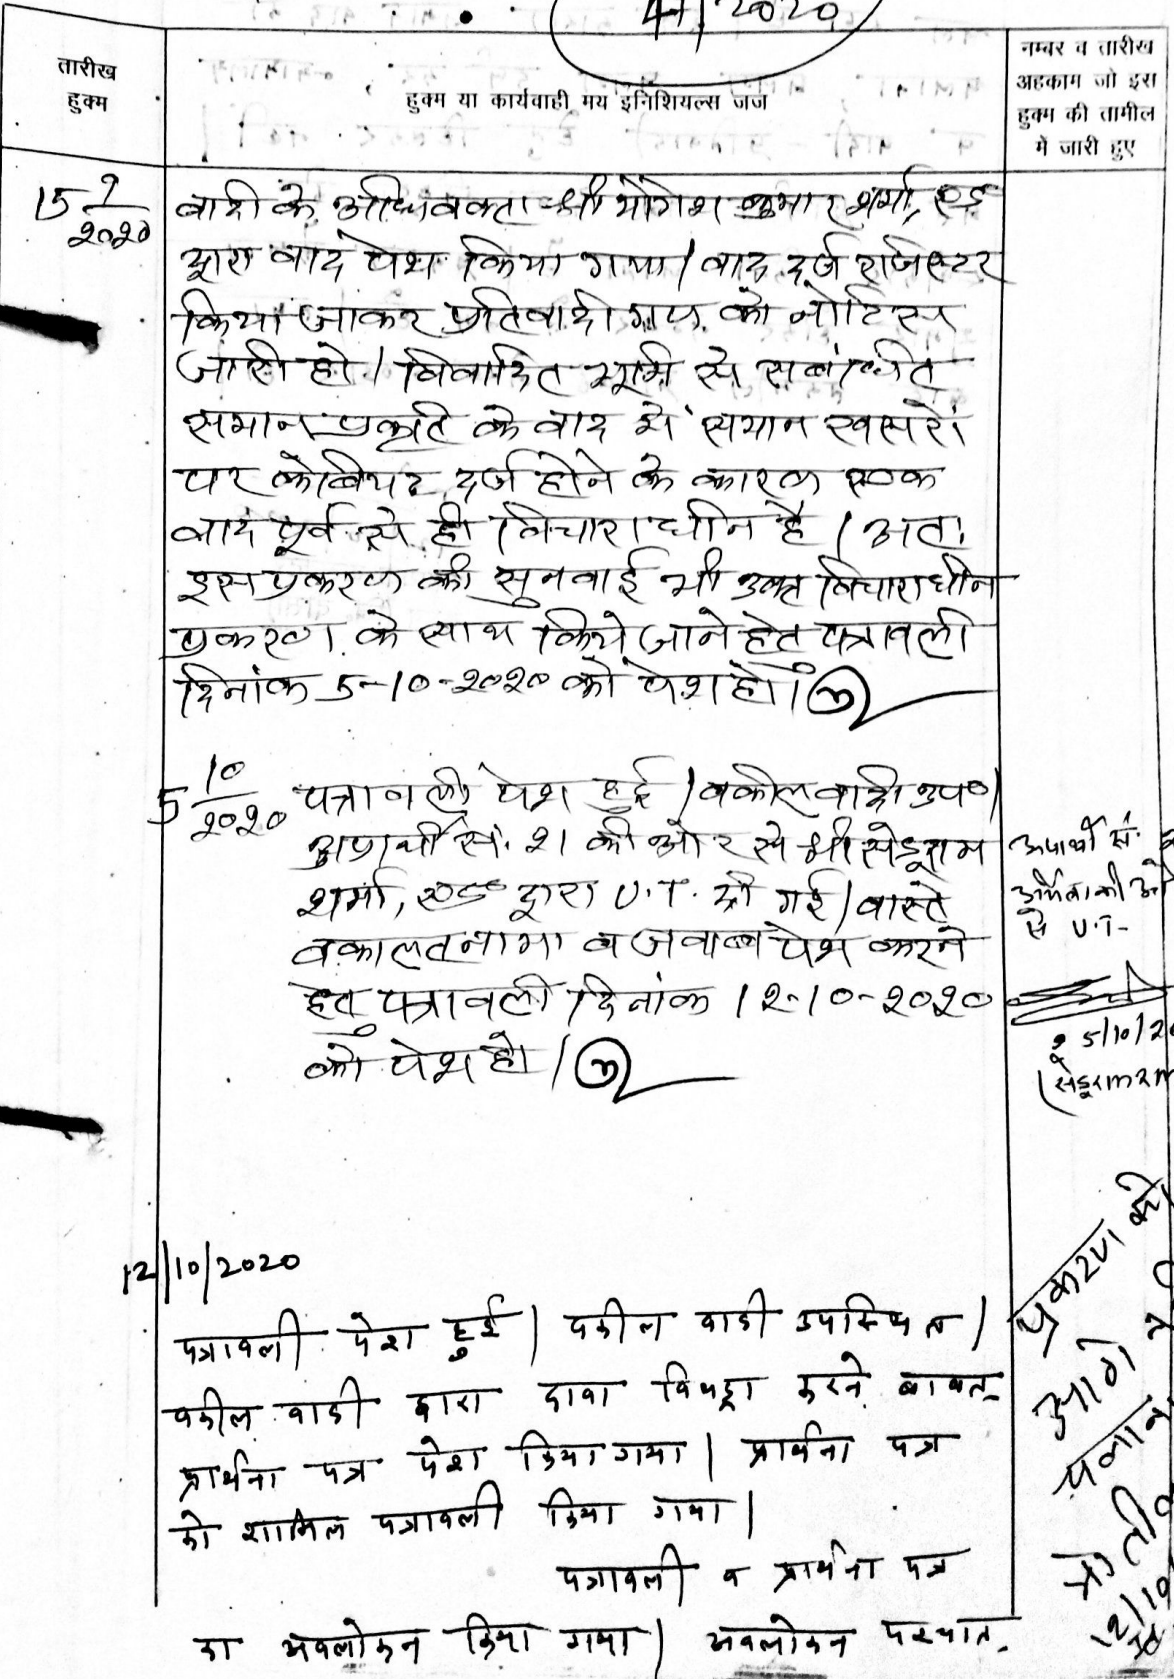 41/2020
तारीख
हुक्म
हुक्म या कार्यवाही मय इनिशियल्स जज
नम्बर व तारीख
अहकाम जो इस
हुक्म की तामील
में जारी हुए
15 9/2020
वादी के अधिवक्ता श्री योगेश कुमार शर्मा, एड
द्वारा वाद पेश किया गया। वाद दर्ज रजिस्टर
किया जाकर प्रतिवादी गण को नोटिस
जारी हो। विवादित भूमि से सबंधित
समान प्रकृति के वाद में समान खसरों
पर केवियट दर्ज होने के कारण एक
वाद पूर्व से ही विचाराधीन है। अतः
इस प्रकरण की सुनवाई भी उक्त विचाराधीन
प्रकरण के साथ किये जाने हेतु पत्रावली
दिनांक 5-10-2020 को पेश हो।
5 10/2020
पत्रावली पेश हुई। वकील वादी उप०।
अप्रार्थी सं. 21 की ओर से श्री सेडूराम
शर्मा, एड द्वारा U.T. दी गई। वास्ते
वकालतनामा व जवाब पेश करने
हेतु पत्रावली दिनांक 12-10-2020
को पेश हो।
अप्रार्थी सं.
की ओर
से U.T-
5/10/20
(सेडूराम
12/10/2020
पत्रावली पेश हुई। वकील वादी उपस्थित।
वकील वादी द्वारा दावा विथड्रा करने बाबत
प्रार्थना पत्र पेश किया गया। प्रार्थना पत्र
को शामिल पत्रावली किया गया।
पत्रावली व प्रार्थना पत्र
का अवलोकन किया गया। अवलोकन पश्चात
प्रकरण को
आगे
12/10